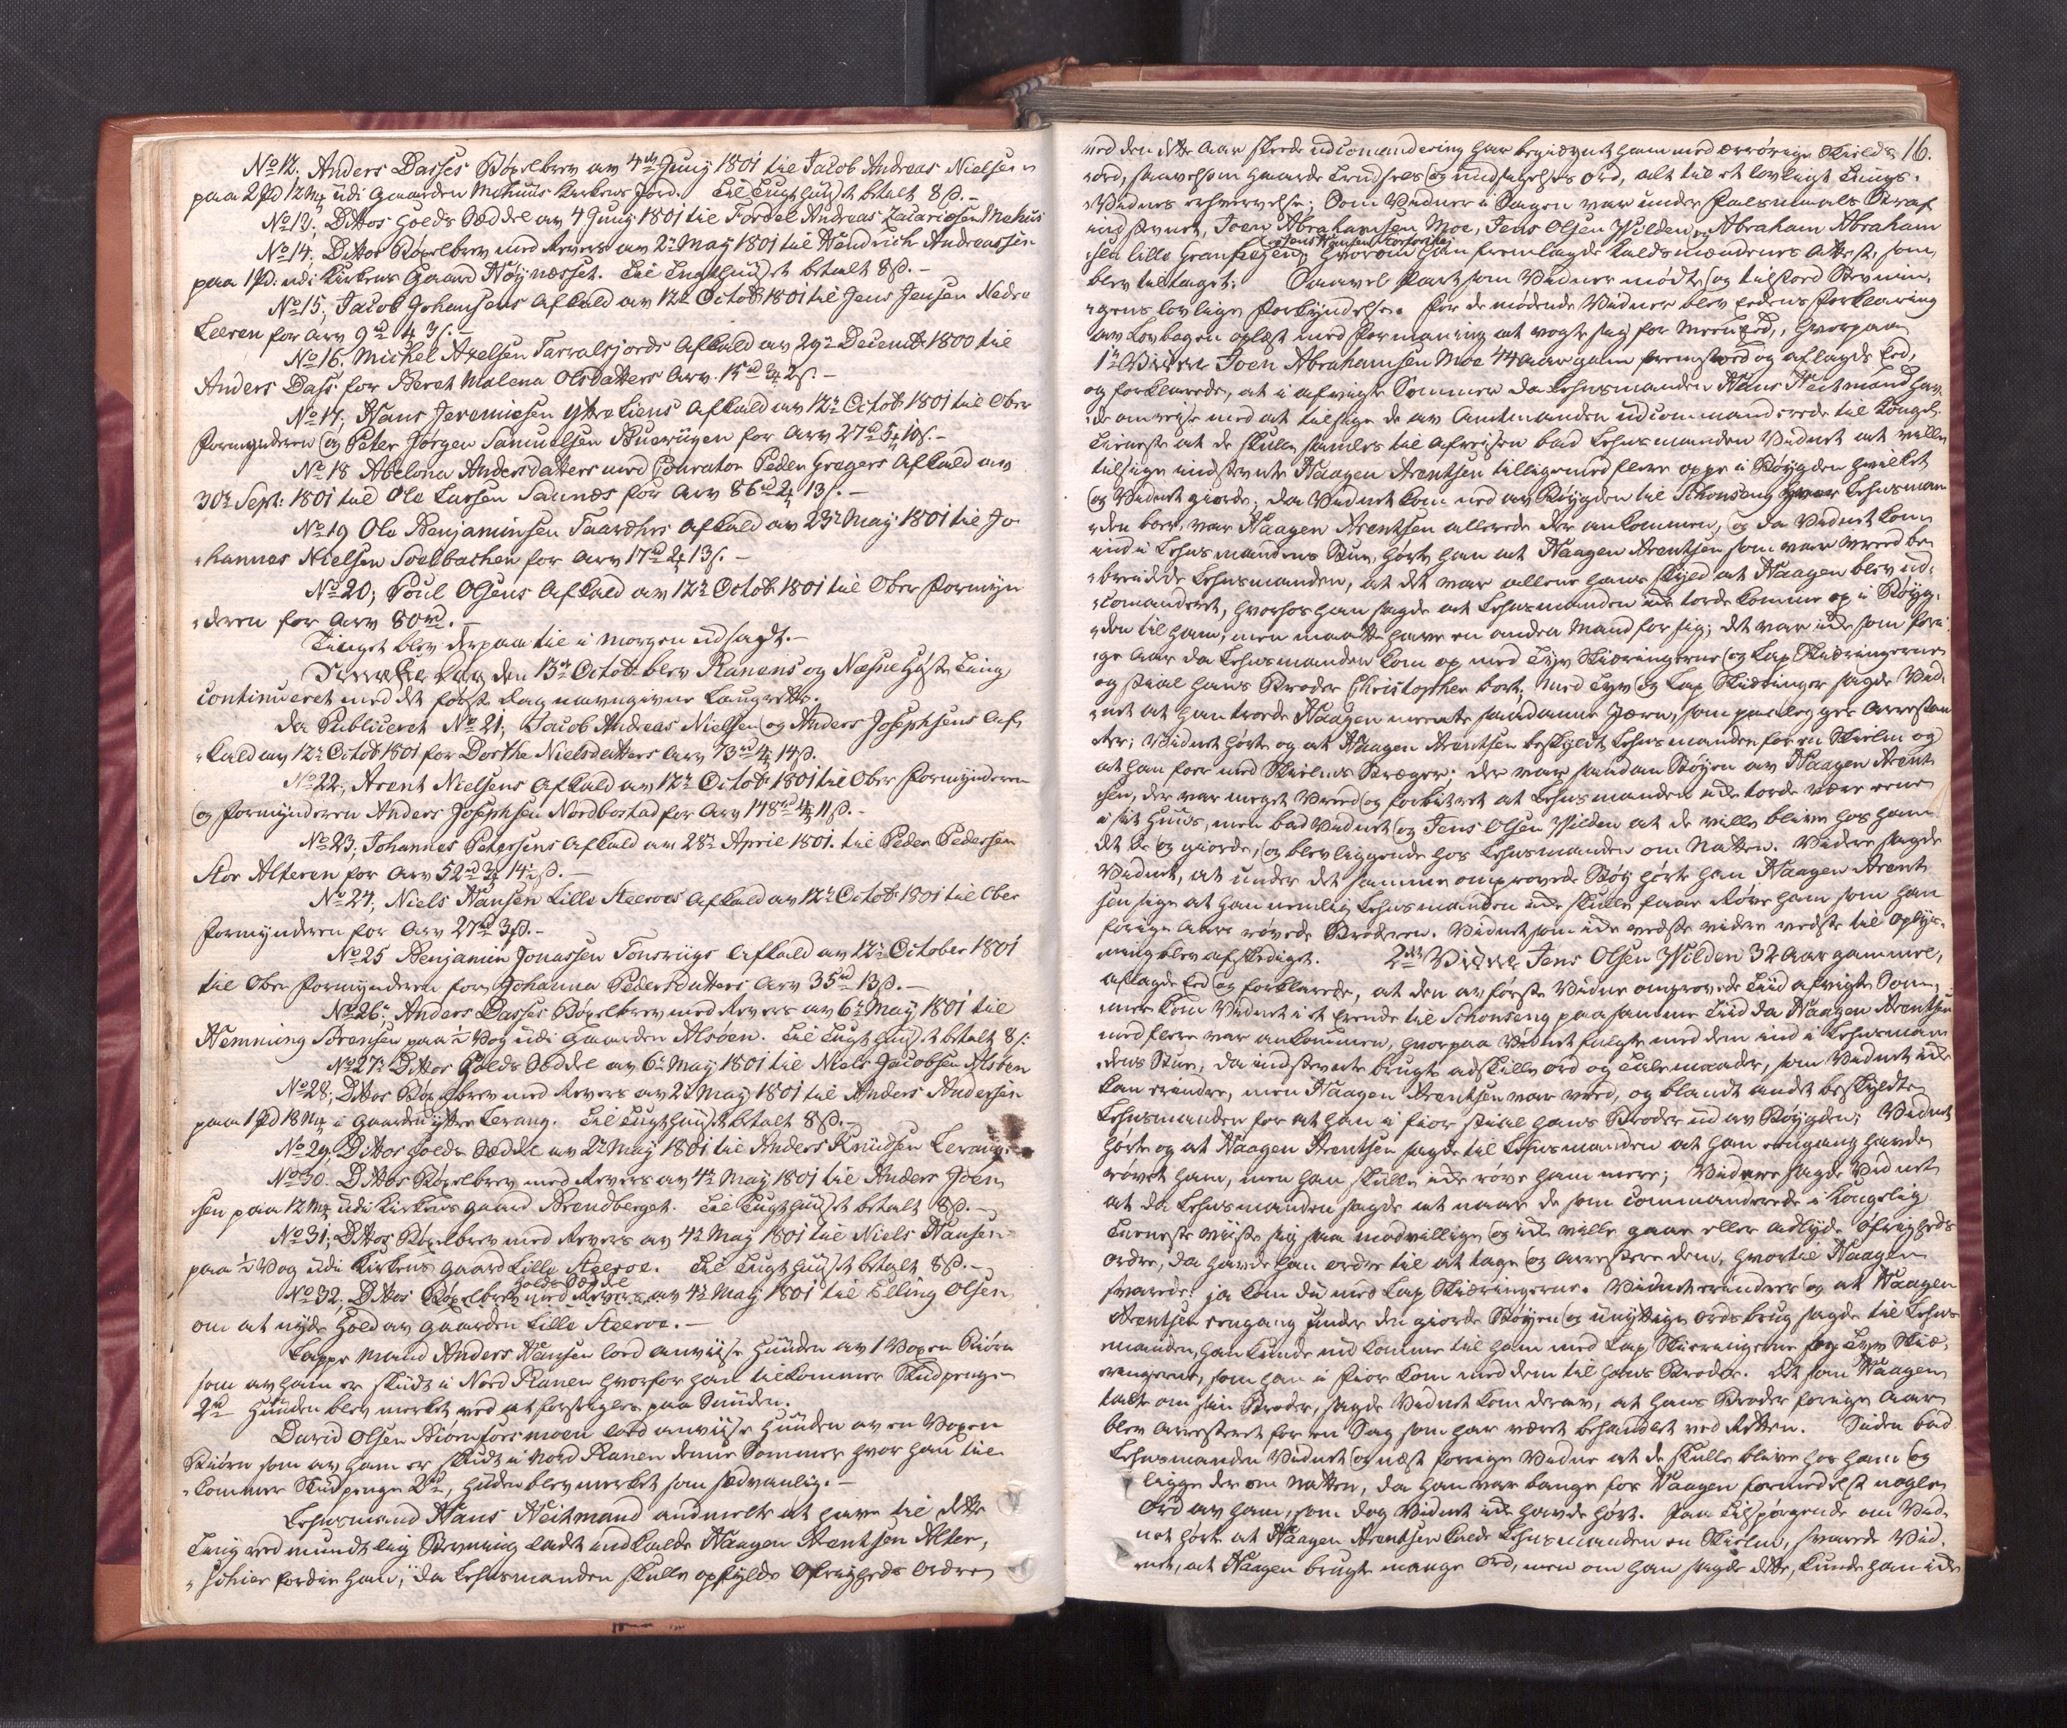 No 12. Anders Dasses Bøxelbrev av 4de Juny 1801 til Jacob Andreas Nielsen
paa 2 Pd 12 Mk udi Gaarden Mehuus Kirkens Jord. Til Tugthuuset betalt 8 ß.-
No 13, Dittos Holds Seddel av 4 Juny 1801 til Fordel Andreas Zacariasen Mehuus
No 14, Dittos Bøxelbrev med Revers av 2n May 1801 til Hendrich Andreassen
paa 1 Pd. udi Kirkens Gaard Høynæsset. Til Tugthuuset betalt 8 ß.-
No 15, Jacob Johansens Afkald av 12te Octob 1801 til Jens Jensen Nedre
Leeren for Arv 9 rd 4 3 s.-
No 16, Michel Axelsen Tarralsjords Afkald av 29n Decemb 1800 til
Anders Dass for Beret Malena Olsdatters Arv 15 rd 3 2 s.-
No 17, Hans Jeremiesen Ytre Liens Afkald av 12te Octob 1801 til Ober
Formynderen og Peter Jørgen Samuelsen Buerüyen for Arv 27 rd 5 10 s.-
No 18 Abelona Andersdatters med Courator Peder Gregers Afkald av
30te Sept. 1801 til Ole Larsen Saunæs for Arv 86 rd 2 13 s.-
No 19 Ole Benjaminsen Faardhis Afkald av 23n May 1801 til Jo
hannes Nielsen Soelbachen for Arv 17 rd 2 13 s.-
No 20, Poul Olsens Afkald av 12te Octob 1801 til Ober Formyn
deren for Arv 80 rd.-
Tinget blev derpaa til i morgen udsagt.-
den 13de Octob blev Ranens og Næsne Høste Ting
continueret med det første dag navngivne Laugrette.
Da Publiceret No 21, Jacob Andreas Nielsen og Anders Josephsens Af
kald av 12te Octob 1801 for Dorthe Nielsdatters Arv 73 rd 4 14 ß.
No 22, Arent Nielsens Afkald av 12te Octob 1801 til Ober Formynderen
og Formynderen Anders Josephsen Nordbostad for Arv 148 rd 4 11 ß.-
No 23, Johannes Petersens Afkald av 28n April 1801. til Peder Pedersen
Stor Alteren for Arv 52 rd 3 14½ ß.-
No 24, Niels Hansen Lille Steeroes Afkald av 12te Octob 1801 til Ober
Formynderen for Arv 27 rd 3 ß.-
No 25 Benjamin Jonassen Fonerüys Afkald av 12te October 1801
til Ober Formynderen for Johanna Pedersdatters Arv 35 rd 13 ß.-
No 26. Anders Dasses Bøxelbrev med Revers av 6te May 1801 til
Henning Sørensen paa ½ Vog udi Gaarden Alsøen. Til Tugthuuset betalt 8 s.
No 27. Dittos Holds Seddel av 6te May 1801 til Niels Jacobsen Alsøen
No 28, Dittos Bøxelbrev med Revers av 2n May 1801 til Anders Andersen
paa 1 Pd 18 Mk i Gaarden Yttre Lerang. Til Tugthuuset betalt 8 ß.-
No 29. Dittos Holds Seddel av 2n May 1801 til Anders Knudsen Lerang
No 30. Dittos Bøxelbrev med Revers av 4n May 1801 til Anders Joen
sen paa 12 Mk udi Kirkens gaard Brendberget. Til Tugthuuset betalt 8 ß.-
No 31, Dittos Bøxelbrev med Revers av 4n May 1801 til Niels Hansen
paa ½ Vog udi Kirkens gaard Lille Steeroe. Til Tugthuuset betalt 8 ß.-
Holds Seddel
No 32. Dittos Bøxelbrev med Revers av 4n May 1801 til Elling Olsen
om at nyde Hold av gaarden Lille Steeroe.-
Lappe Mand Anders Hansen lod anviise Huuden av 1 Voxen Biørn
som av ham er skudt i Nord Ranen hvorfor han tilkommer Skudpenge
2 rd Huuden blev merket ved at forseigles paa Snuden.
David Olsen Biørnforsmoen lod anviise Huuden av en Voxen
Biørn som av ham er skudt i Nord Ranen denne Sommer hvor han til
kommer Skudpenge 2 rd, Huden blev merket som sædvanlig.-
Lehnsmand Hans Heitmand anmeldte at have til dette
Ting ved mundtlig Stevning ladt indkalde Haagen Arentsen Alter,
fordi han, da Lehnsmanden skulle opfylde Øfrigheds Ordre
ved den dette Aar skeede udcomandering har begiegnet ham med ærrørige Skields 16.
ord, saavelsom haarde Trudsels og undsigelses ord, alt til et lovligt Tings
Vidnes erhvervelse; Som Vidner i Sagen var under Falsmaals Straf
indstevnt, Joen Abrahamsen Moe, Jens Olsen Wilden, Abraham Abraham
sen lille hvorom han fremlagde Kaldsmændenes Attest som
blev tiltaget. Saavel Part som Vidner mødte og tilstoed Stevnin
gens lovlige Forkyndelse. For de mødende Vidner blev Eedens Forklaring
av Lovbogen oplæst med Formaning at vogte sig for Meeneed, hvorpaa
1te Vidne Joen Abrahamsen Moe 44 Aar gam fremstoed og aflagde Eed,
og forklarede, at i afvigte Sommer da Lehnsmanden Hans Heitmand hav
de omreise med at tilsige de av Amtmanden udcommanderede til Kongel.
Tieneste at de skulle samles til afreisen bad Lehnsmanden Vidnet at ville
tilsige indstevnte Haagen Arentsen tilligemed flere oppe i Bøygden hvilket
og Vidnet giorde; da Vidnet kom ned av Bøygden til Schonseng hvor Lehnsman
den boer, var Haagen Arentsen allerede der ankommen, og da Vidnet kom
ind i Lehnsmandens Stue, hørte han at Haagen Arentsen som var vreed be
breidede Lehnsmanden, at det var allene hans skyld at Haagen blev ud
comanderet, hvorhos han sagde at Lehnsmanden ikke torde komme op i Bøyg
den til ham, men maatte have en anden Mand for sig; det var ikke som fori
ge Aar da Lehnsmanden kom op med Tyv Skiæringerne og Lap Skiæringerne
og stial hans Broder Christopher bort; med Tyv og Lap Skiæringer sagde Vid
net at han troede Haagen meente saadanne Jærn, som paalegges Arrestan
ter; Vidnet hørte og at Haagen Arentsen beskyldte Lehnsmanden for en Skielm og
at han foer med Skielms Streger; der var saadan Støyen av Haagen Arent
sen, der var meget Vreed og forbitret at Lehnsmanden ikke torde være eene
i sit Huus, men bad Vidnet og Jens Olsen Wilden at de ville blive hos ham
det de og giorde, og blev liggende hos Lehnsmanden om Natten. Videre sagde
Vidnet, at under det samme omprovede Støy hørte han Haagen Arent
sen sige at han nemlig Lehnsmanden ikke skulle faae røve ham som han
forige Aar røvede Broderen. Vidnet som ikke vedste videre vedste til oplys
ning blev afskediget. 2det Vidne Jens Olsen Wilden 32 Aar gammel,
aflagde Eed og forklarede, at den av første Vidne omprovede Tiid afvigte Som
mer kom Vidnet i et Erende til Schonseng paa samme Tiid da Haagen Arentsen
med flere var ankommen, hvorpaa Vidnet fulgte med dem ind i Lehnsman
dens Stue, da indstevnte brugte adskillige ord og Talemaader, som Vidnet ikke
kan erindre, men Haagen Arentsen var vred, og blandt andet beskyldte
Lehnsmanden for at han i fior stial hans Broder ud av Bøygden; Vidnet
hørte og at Haagen Arentsen sagde til Lehnsmanden at han eengang havde
røvet ham, men han skulle ikke røve ham mere; Videre sagde Vidnet
at da Lehnsmanden sagde at naar de som commanderede i Kongelig
Tieneste viiste sig saa modvillige og ikke ville gaae eller adlyde Øfrigheds
ordre, da havde han ordre til at tage og arrestere dem, hvortil Haagen
svarede: ja kom du med Lap Skiæringerne. Vidnet erindrer og at Haagen
Arentsen eengang under den giorde Støyen og unyttige ords brug sagde til Lehns
manden, han kunde nu komme til ham med Lap Skieringerne Tyv Skiæ
ringerne, som han i fior kom med dem til hans Broder. Det som Haagen
talte om sin Broder, sagde Vidnet kom derav, at hans Broder forige Aar
blev arresteret for en Sag som har været behandlet ved Retten. Siden bad
Lehnsmanden Vidnet og næst forrige Vidne at de skulle blive hos ham og
ligge der om Natten, da han var bange for Haagen formedelst nogle
Ord av ham, som dog Vidnet ikke havde hørt. Paa Tilspørgende om Vid
net hørte at Haagen Arentsen kalde Lehnsmanden en Skielm, svarede Vid
net, at Haagen brugte mange ord, men om han sagde dette, kunde han ikke